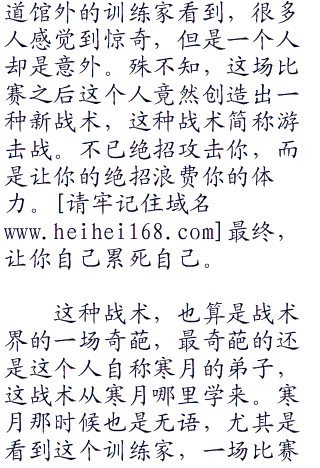 道馆外的训练家看到，很多
人感觉到惊奇，但是一个人
却是意外。殊不知，这场比
赛之后这个人竟然创造出一
种新战术，这种战术简称游
击战。不已绝招攻击你，而
是让你的绝招浪费你的体
力。[请牢记住域名
www.heihei168.com]最终，
让你自己累死自己。
这种战术，也算是战术
界的一场奇葩，最奇葩的还
是这个人自称寒月的弟子，
这战术从寒月哪里学来。寒
月那时候也是无语，尤其是
看到这个训练家，一场比赛